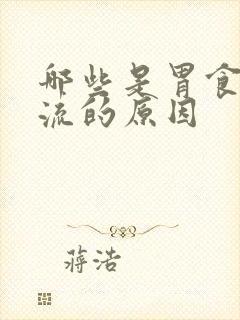 哪些是胃食
流的原因
蒋浩